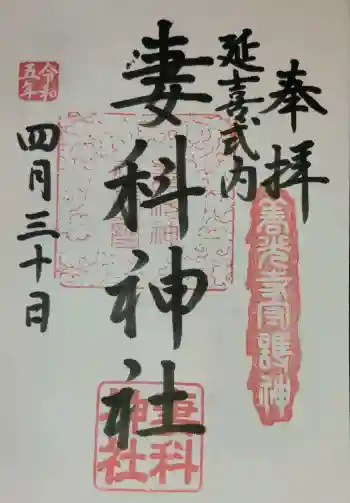 奉拝
善光寺守護神
延喜式内
妻科神社
妻科
神社
令和
五年
四月三十日